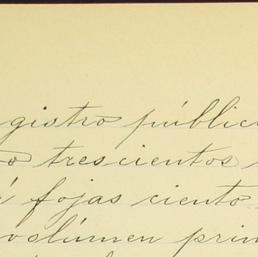 gistro públic
o trescientos
á fojas ciento
volúmen prim